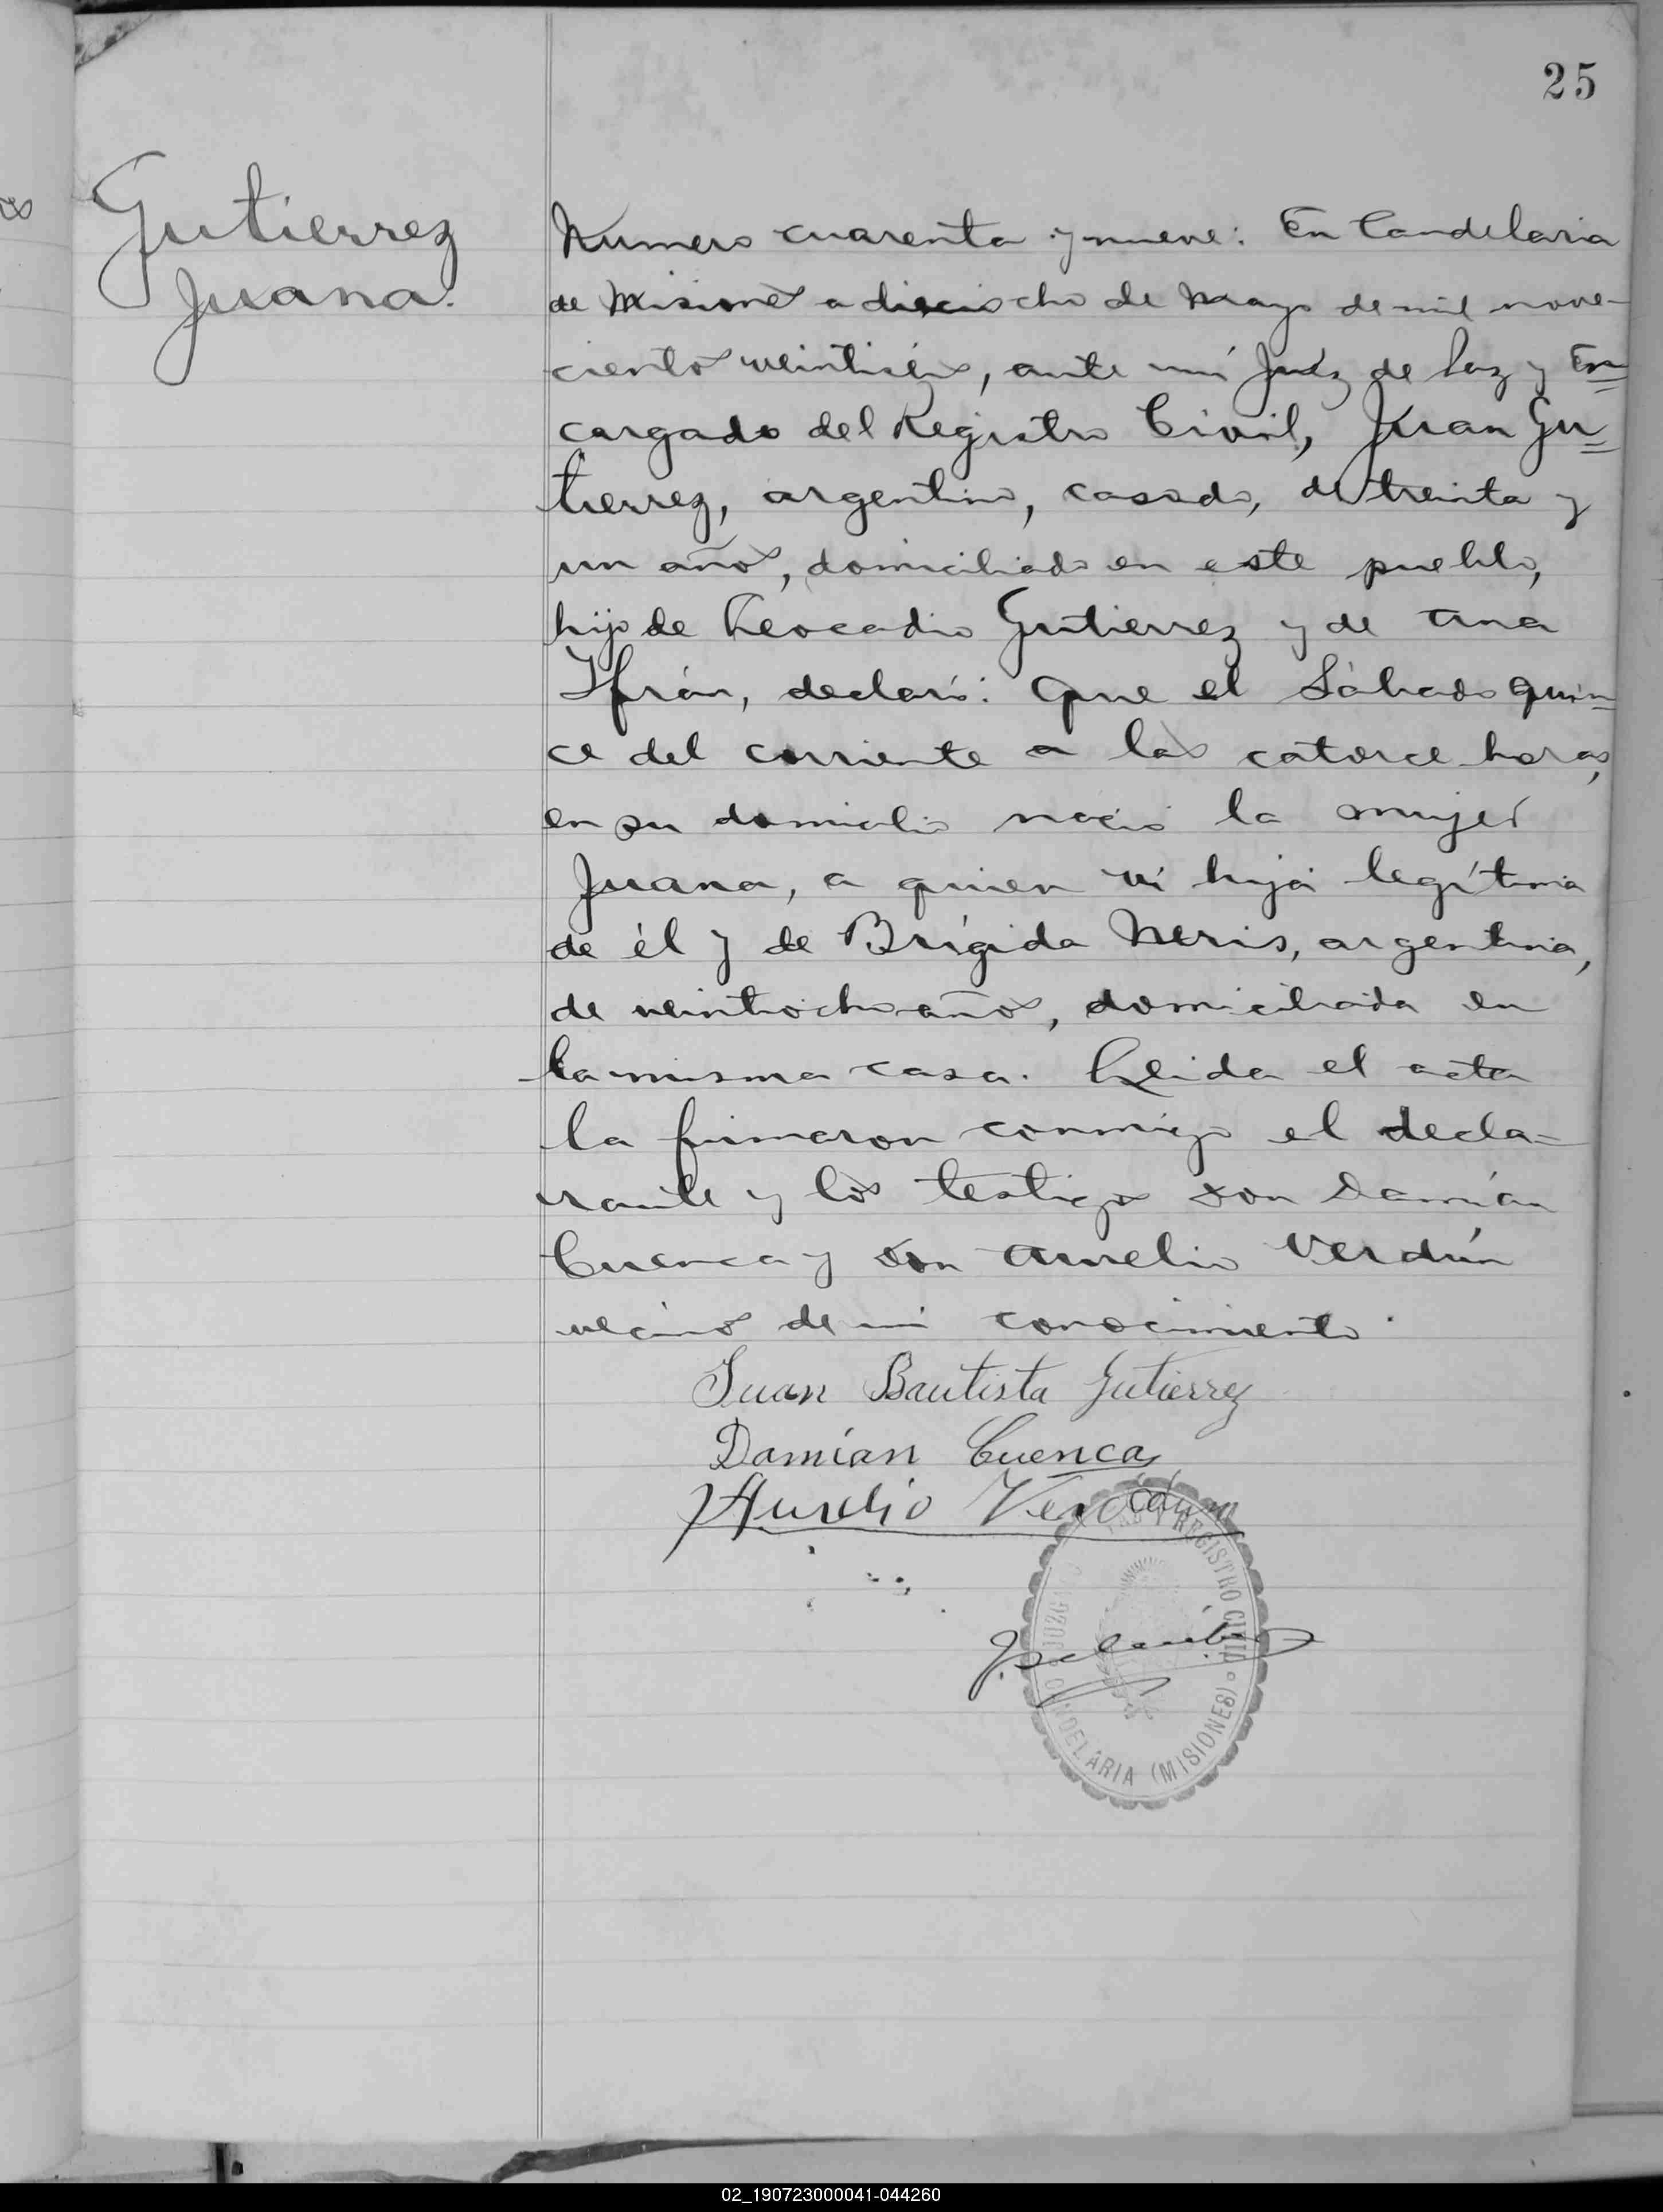 25
Gutierrez
Juana.
Numero cuarenta y nueve: En Candelaria
de Misiones a dieciocho de Mayo de mil nove-
cientos veintiséis, ante mí Juéz de Paz y En=
cargado del Registro Civil, Juan Gu=
tierrez, argentino, casado, de treinta y
un años, domiciliado en este pueblo,
hijo de Leocadio Gutierrez y de Ana
Ifrán, declaró: Que el Sábado quin=
ce del corriente a las catorce horas,
en su domicilio nació la mujer
Juana, a quien ví hija legítima
de él y de Brígida Neris, argentina,
de veintiocho años, domiciliada en
la misma casa. Leida el acta
la firmaron conmigo el decla-
rante y los testigos don Damián
Cuenca y don Aurelio Verdún
vecinos de mi conocimiento.
Juan Bautista Gutierrez
Damían Cuenca
Aurelio Verdún
JUZGADO REGISTRO CIVIL
CANDELARIA (MISIONES)
02_190723000041-044260